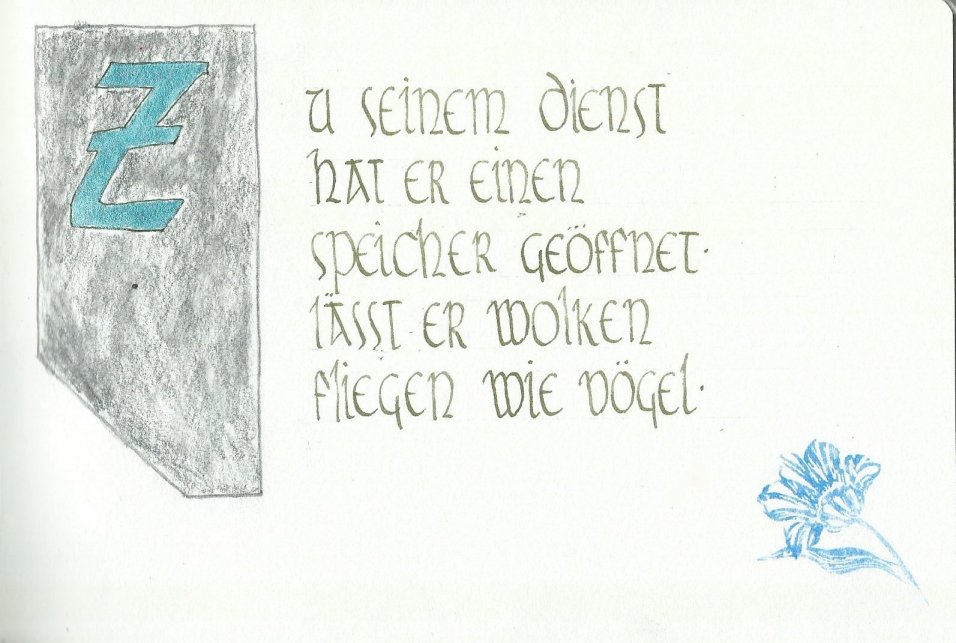 Zu seinem Dienst
hat er einen
Speicher geöffnet.
lässt er Wolken
fliegen wie Vögel.